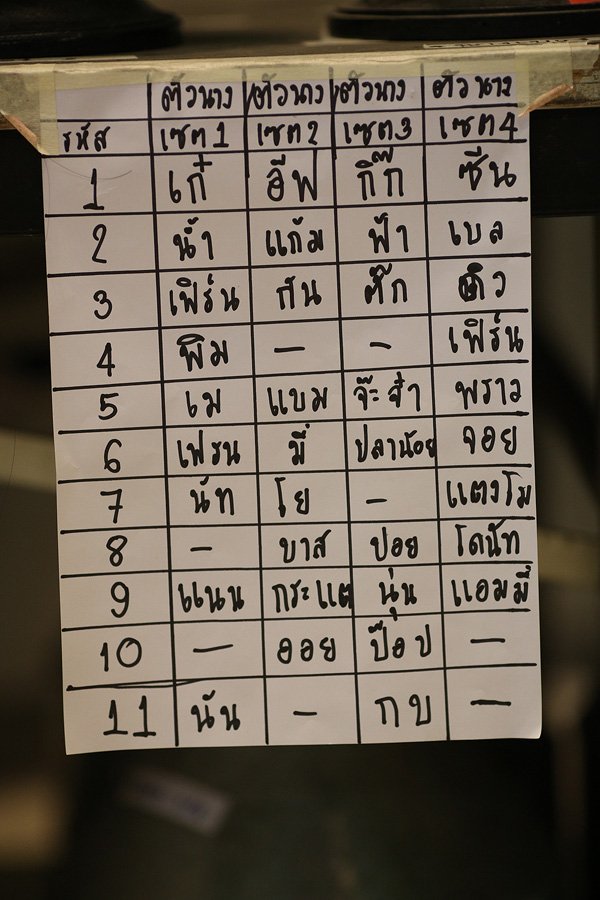 ตัวนาง ตัวนาง ตัวนาง ตัวนาง
รหัส เซต1 เซต2 เซต3 เซต4
1 เก๋ อีฟ กิ๊ก ซีน
2 น้ำ แก้ม ฟ้า เบล
3 เฟิร์น กัน ตั๊ก คิว
4 พิม – – เฟิร์น
5 เม แบม จ๊ะจ๋า พราว
6 เฟรน มี่ ปลาน้อย จอย
7 นัท โย – แตงโม
8 – บาส ปอย โดนัท
9 แนน กระแต นุ่น แอมมี่
10 – ออย ป๊อป –
11 นัน – กบ –